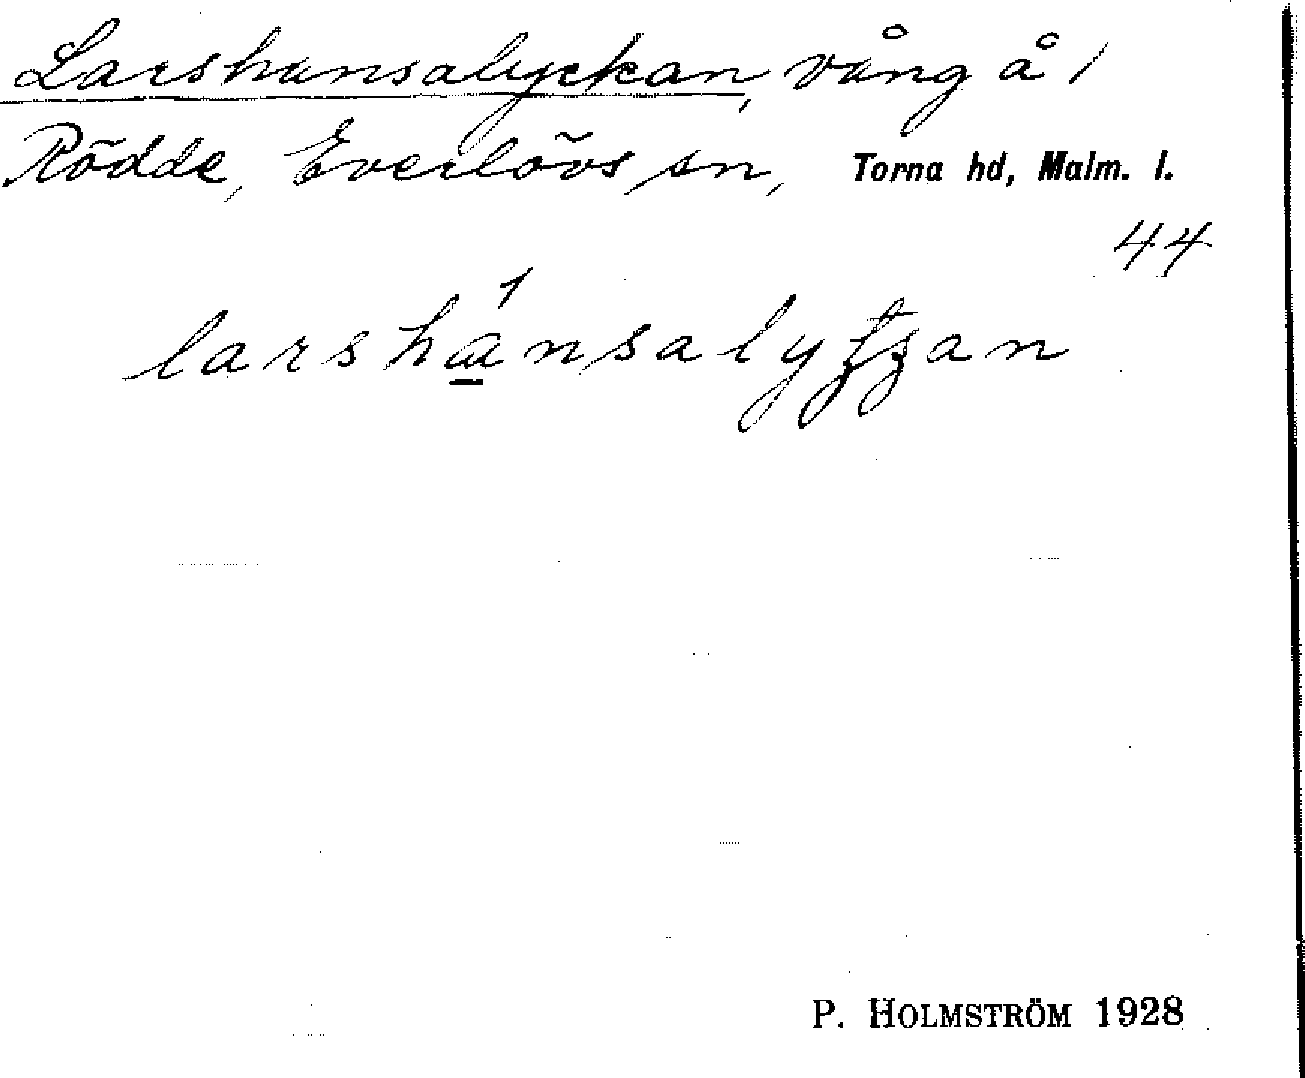 Larshansalyckan, vång å /
Rödde, Everlövs sn, Torna hd, Malm. l.
44
P. HOLMSTRÖM 1928